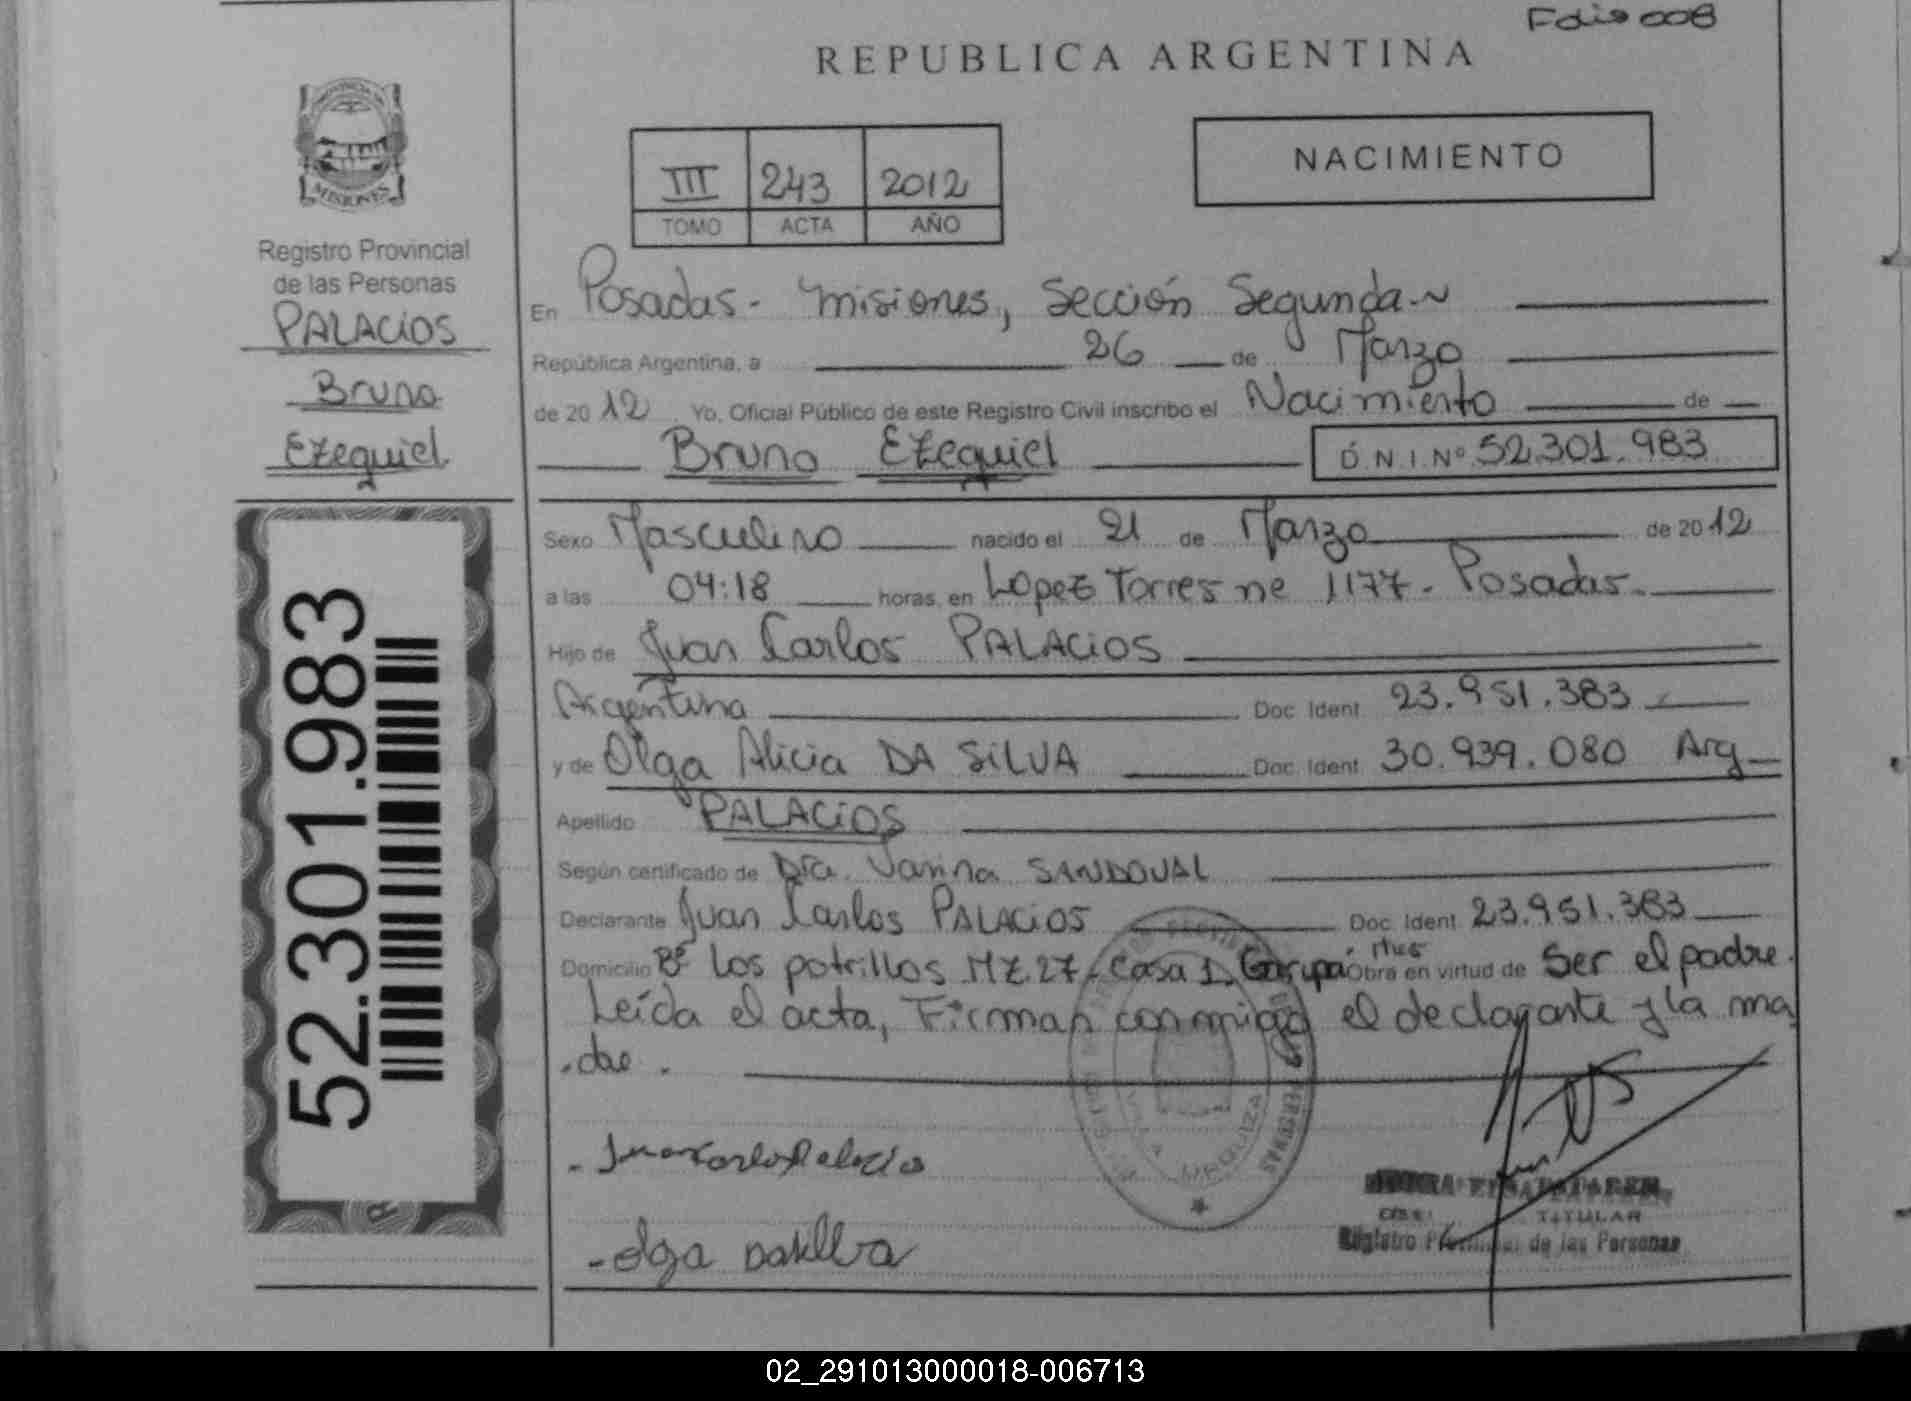 Folio 008
REPUBLICA ARGENTINA
MISIONES
Registro Provincial
de las Personas
PALACIOS
Bruno
Ezequiel
52.301.983
III 243 2012
TOMO ACTA AÑO
NACIMIENTO
En Posadas - Misiones, Sección Segunda.~
República Argentina, a 26 de Marzo
de 2012 Yo, Oficial Público de este Registro Civil inscribo el Nacimiento de
Bruno Ezequiel D.N.I.Nº 52.301.983
Sexo Masculino nacido el 21 de Marzo de 2012
a las 04:18 horas, en Lopez Torres ne 1177 - Posadas.
Hijo de Juan Carlos PALACIOS
Argentina Doc. Ident. 23.951.383
y de Olga Alicia DA SILVA Doc. Ident. 30.939.080 Arg
Apellido PALACIOS
Según certificado de Dra. Vanina SANDOVAL
Declarante Juan Carlos PALACIOS Doc. Ident. 23.951.383
Domicilio Bº Los potrillos MZ 27 - Casa 1. Garupá Mnes Obra en virtud de Ser el padre.
Leída el acta, Firman conmigo el declarante y la ma
dre.
- Juan Carlos Palacio
- olga Dasilva
URQUIZA
TITULAR
Registro Provincial de las Personas
02_291013000018-006713